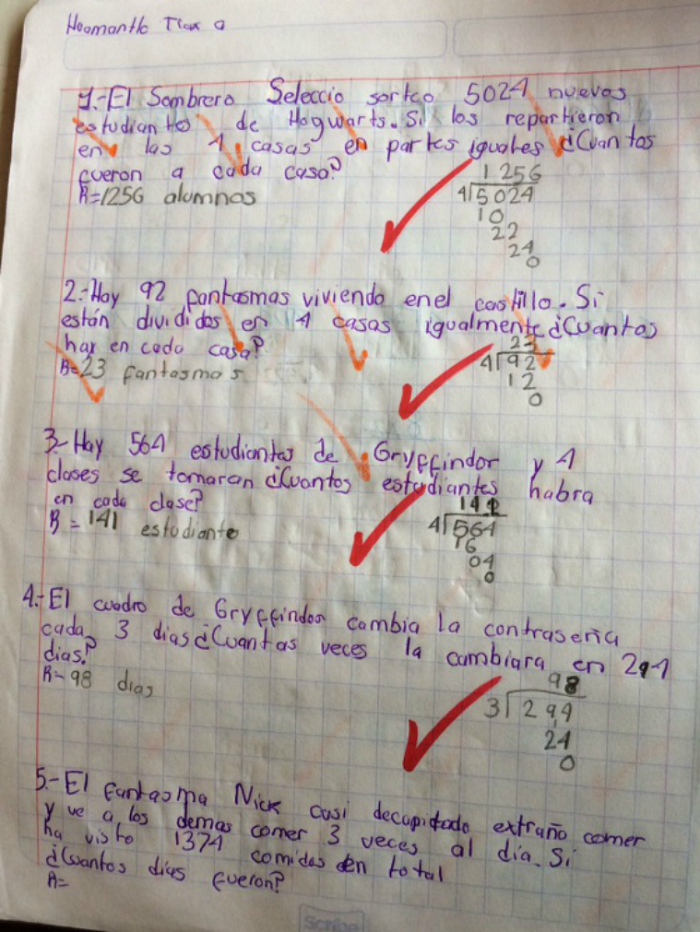 Huamantla Tlax a
1.-El Sombrero Seleccio sorteo 5024 nuevos
estudiantes de Hogwarts. Si los repartieron
en las 4 casas en partes iguales ¿Cuantos
fueron a cada casa?
R=1256 alumnos
1256
4 5024
10
22
24
0
2.-Hay 92 fantasmas viviendo en el castillo. Si
están divididos en 4 casas igualmente ¿Cuantos
hay en cada casa?
R=23 fantasmas
23
4 92
12
0
3.-Hay 564 estudiantes de Gryffindor y 4
clases se tomaran ¿Cuantos estudiantes habra
en cada clase?
R=141 estudiante
141
4 564
16
04
0
4.-El cuadro de Gryffindor cambia la contraseña
cada 3 dias ¿Cuantas veces la cambiara en 294
dias?
R=98 dias
98
3 294
24
0
5.-El fantasma Nick casi decapitado extraño comer
y ve a los demas comer 3 veces al día. Si
ha visto 1374 comidas en total
¿Cuantos dias fueron?
R=
Scribe